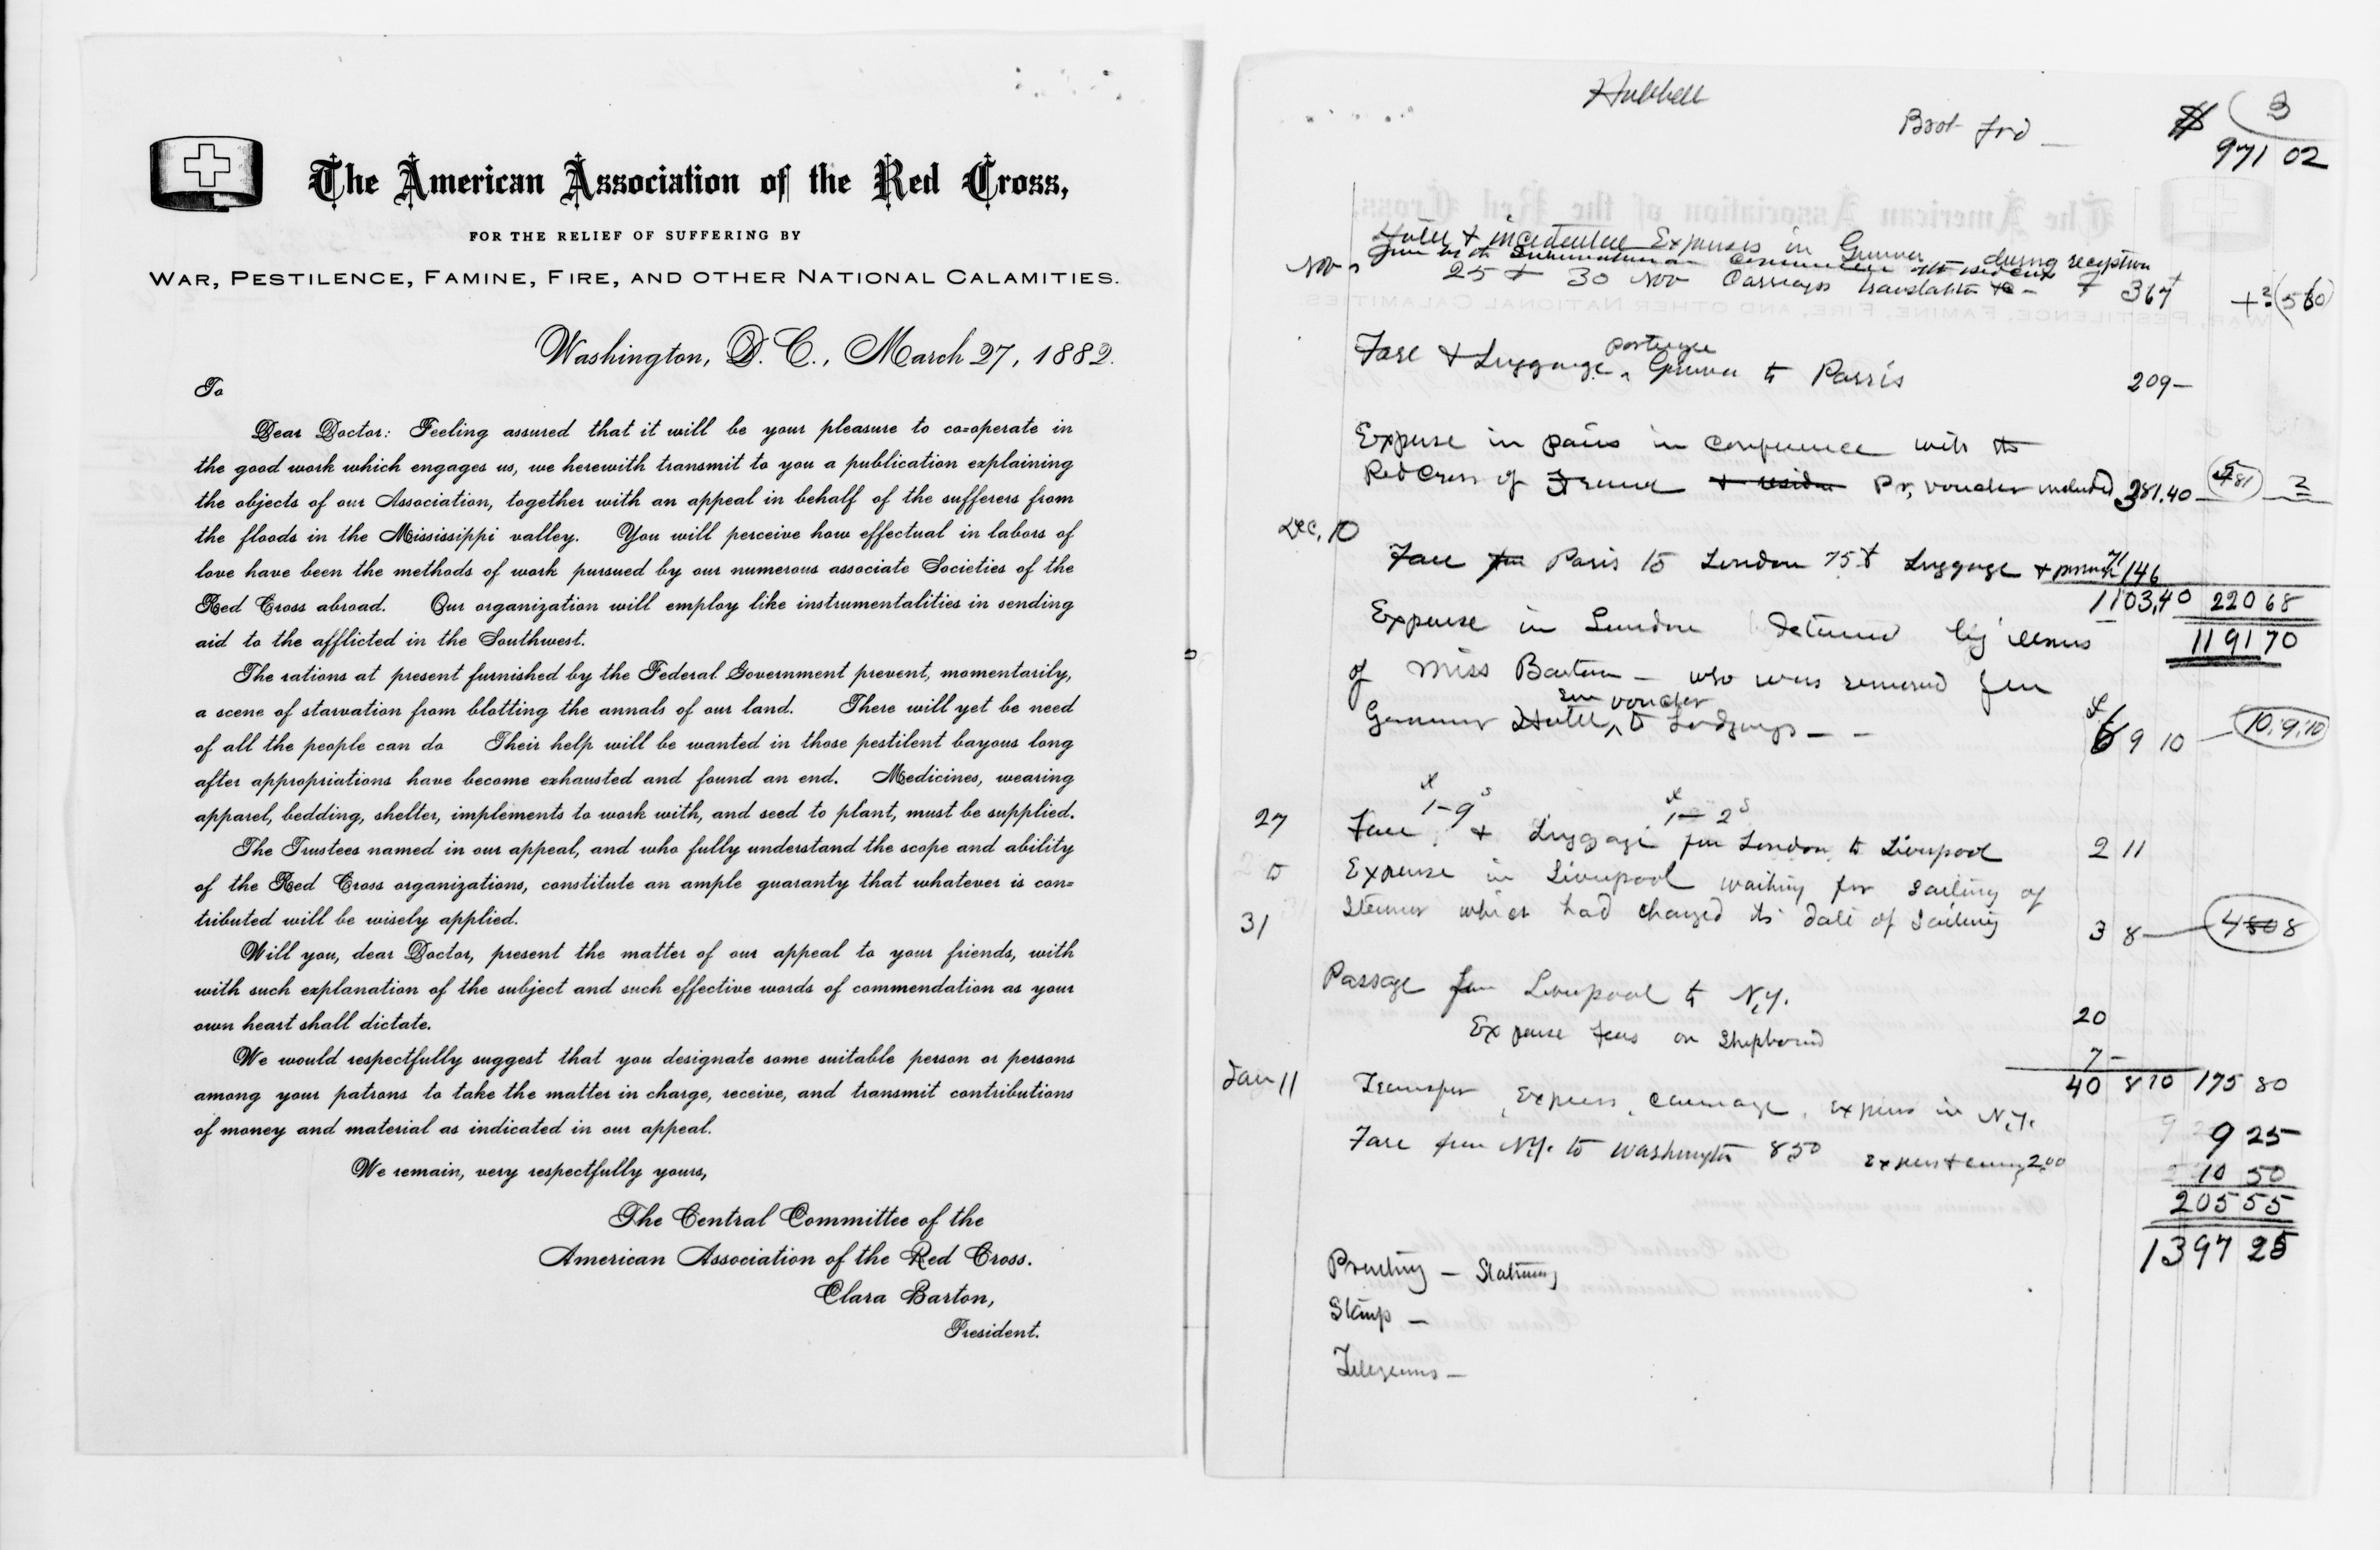 The American Association of the Red Cross,
FOR THE RELIEF OF SUFFERING BY
WAR, PESTILENCE, FAMINE, FIRE, AND OTHER NATIONAL CALAMITIES.
Washington, D. C., March 27, 1882.
To
Dear Doctor: Feeling assured that it will be your pleasure to co=operate in
the good work which engages us, we herewith transmit to you a publication explaining
the objects of our Association, together with an appeal in behalf of the sufferers from
the floods in the Mississippi valley. You will perceive how effectual in labors of
love have been the methods of work pursued by our numerous associate Societies of the
Red Cross abroad. Our organization will employ like instrumentalities in sending
aid to the afflicted in the Southwest.
The rations at present furnished by the Federal Government prevent, momentarily,
a scene of starvation from blotting the annals of our land. There will yet be need
of all the people can do Their help will be wanted in those pestilent bayous long
after appropriations have become exhausted and found an end. Medicines, wearing
apparel, bedding, shelter, implements to work with, and seed to plant, must be supplied.
The Trustees named in our appeal, and who fully understand the scope and ability
of the Red Cross organizations, constitute an ample guaranty that whatever is con=
tributed will be wisely applied.
Will you, dear Doctor, present the matter of our appeal to your friends, with
with such explanation of the subject and such effective words of commendation as your
own heart shall dictate.
We would respectfully suggest that you designate some suitable person or persons
among your patrons to take the matter in charge, receive, and transmit contributions
of money and material as indicated in our appeal.
We remain, very respectfully yours,
The Central Committee of the
American Association of the Red Cross.
Clara Barton,
President.
Hubbell
3
Brot ford — $ 971 02
Hotel & incidental Expenses in Geneva during reception
Nov
25 & 30 Nov Carriages translation &c - F 367
Fare & Luggage portage Geneva to Parris 209—
Expense in paris in conference with the
Red Cross of France Pr, voucher included 381.40 2
Dec, 10
Fare from Paris to London 75 & Luggage + 71 146
1103,40 220 68
Expense in London detained by illness 1191 70
of Miss Barton — who was removed from
see voucher
Hotel to Lodgings — — £ 6 9 10 10.9.10
£ 1-9s £ 1- 2s
27 Fare & Luggage from London to Liverpool 2 11
to Expense in Liverpool waiting for sailing of
31 Steamer which had changed its date of Sailing 3 8 —
Passage from Liverpool to N.Y. 20
Expense fees on Shipboard 7—
40 8 10 175 80
Jan 11 Transfer, Express, carriage, expens in N.Y. 9 25
Fare from N.Y. to Washington 850 2.00 10 50
205 55
1397 25
Printing — Stationery
Stamp —
Telegrams —